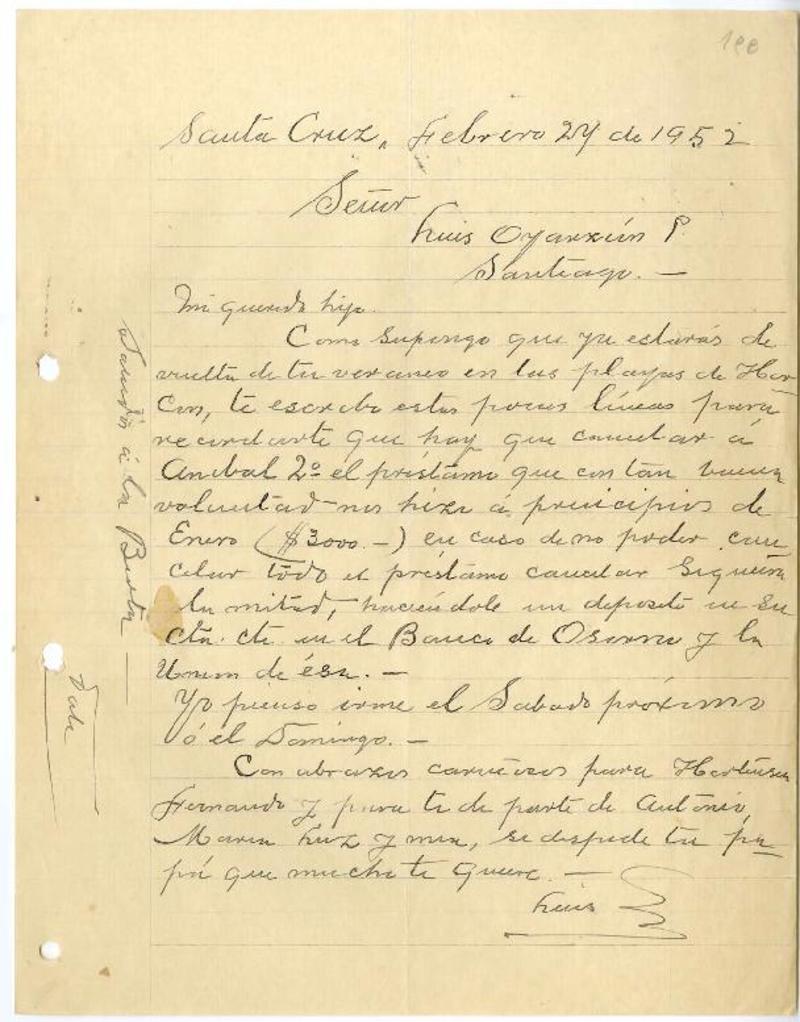 Santa Cruz, Febrero 27 de 1952
Señor
Luis Oyarzún P.
Santiago. —
Mi querido hijo.
Como supongo que ya estarás de
vuelta de tu veraneo en las playas de Hor
Con, te escribo estas pocas líneas para
recordarte que hay que cancelar á
Anibal 2º el préstamo que con tan buena
voluntad nos hizo á principios de
Enero ($3000.—) en caso de no poder can
celar todo el préstamo cancelar siquiera
la mitad, haciéndole un deposito en su
cta. cte en el Banco de Osorno y la
Union de ésa. —
Yo pienso irme el Sabado próximo
ó el Domingo. —
Con abrazos cariñosos para Hortensia
Fernando y para ti de parte de Antonio,
Maria Luz y mia, se despide tu pa—
pá que mucho te quiere. —
Luis
Saludos á la Berta —
Vale